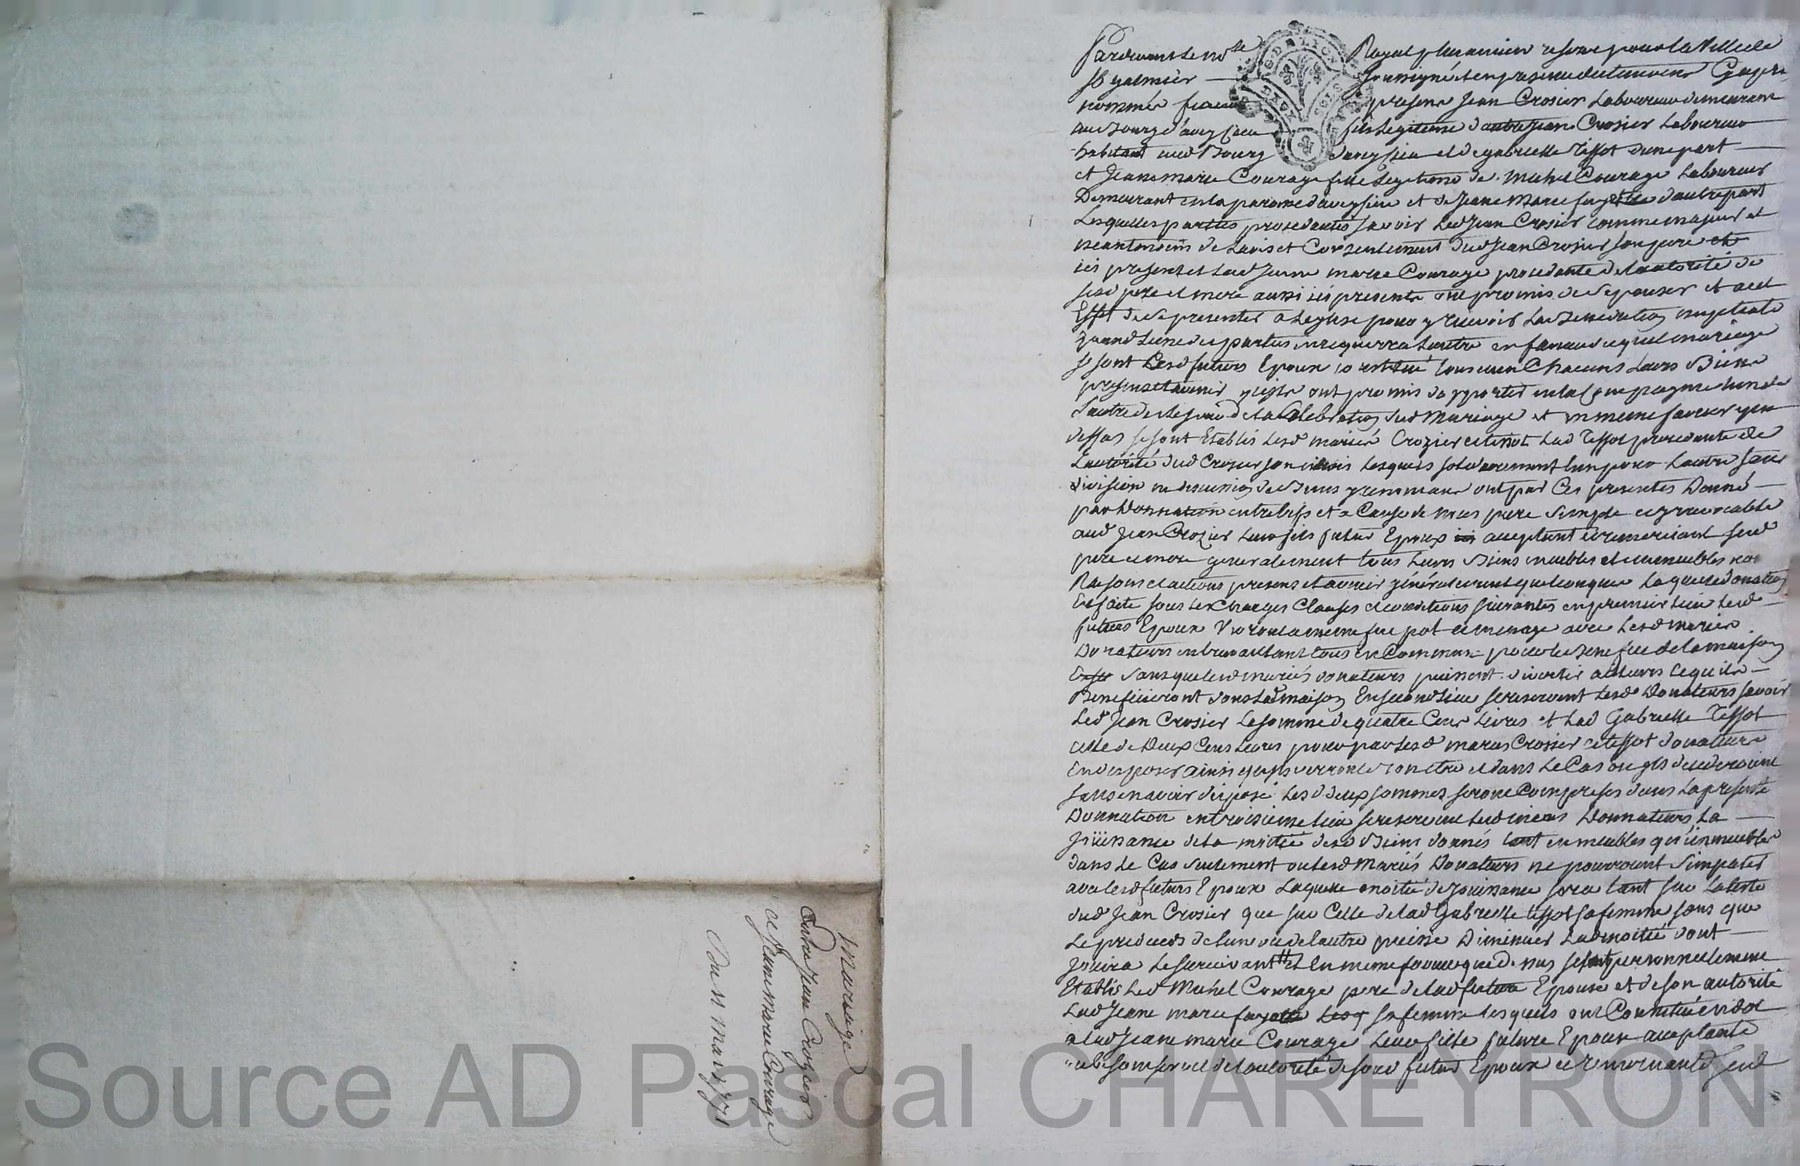 Pardevant le no.re Royal plus ancien reservé pour la Ville de
st galmier soussigné et en presence des temoins
nommés fut present Jean Crosier Laboureur demeurant
au Bourg d'aveysieu fils legitime d'autre Jean Crosier Laboureur
habitant aud Bourg d'aveysieu et de gabrielle Tissot d'une part
et Jeanemarie Courage fille legitime de Michel Courage Laboureur
Demeurant en la paroisse d'aveysieu et de Jeane Marie fayolle d'autre part
Lesquelles parties procedantes savoir Led Jean Crosier comme majeur et
neantmoins de Lavis et Consentement dud Jean Crosier son pere
ici present et Lad Jeanne marie Courage procedante de Lautorité de
sesd pere et mere aussi ici presents ont promis de s'epouser et a cet
Effet de se presenter a Leglise pour y recevoir La Benediction nuptiale
quand Lune des parties en requerra Lautre en faveur duquel mariage
se sont Lesd futurs Epoux constitué tous un Chacuns Leurs Biens
presents et avenir qu'ils ont promis d'apporter en la Compagnie lun de
Lautre des le jour de la Celebration dud Mariage et en meme faveur que
dessus se sont Etablis Lesd mariés Crozier et Tissot Lad Tissot procedante de
Lautorité dud Crosier son mari Lesquels solidairement lun pour Lautre sans
division ni discussion de Biens y renonçant ont par Ces presentes Donné
par Donnation entrevifs et a Cause de noces pure simple et irrevocable
aud Jean Crozier Leur fils futur Epoux acceptant et remerciant sesd
pere et mere generalement tous Leurs Biens meubles et immeubles noms
Raisons et actions presents et avenir généralement quelconques Laquelle donation
Est faite sous Les Charges Clauses et conditions suivantes en premier lieu Lesd
futurs Epoux Vivront a meme feu pot et menage avec Lesd mariés
Donateurs en travaillant tous en Commun pour le Benefice de la maison
sans que lesd mariés donateurs puissent divertir ailleurs ce qu'ils
Beneficieront dans Lad maison En second lieu se reservent Lesd Donateurs savoir
Led Jean Crosier La somme de quatre Cens Livres et Lad Gabrielle Tissot
celle de Deux Cens Livres pour par Lesd mariés Crosier et Tissot donateurs
En disposer ainsi qu'ils verront bon etre et dans Le Cas ou ils decederoient
sans en avoir disposé Lesd deux sommes seront Comprises dans La presente
Donnation en troisieme lieu se reservent Lesd mariés Donnateurs La
Jouissance de La moitié desd Biens donnés tant en meubles qu'immeubles
dans Le Cas seulement ou Lesd Mariés Donateurs ne pourroient simpatiser
avec lesd futurs Epoux Laquelle moitié de jouissance sera tant sur La teste
dud Jean Crosier que sur Celle de lad Gabrielle Tissot sa femme sans que
Le predeces de lun ou de lautre puisse Diminuer Lad moitié dont
jouira Le survivant Et En meme faveur que de nas se sont personnellement
Etablis Led Michel Courage pere de lad future Epouse et de son autorité
Lad Jeane marie fayolle sa femme Lesquels ont Constitué en dot
a lad Jeane marie Courage Leur fille future Epouse acceptante
de lautorité de sond futur Epoux et remerciant sesd
mariage
Entre Jean Crozier
et Jeane marie Courage
Du 11 mars 1771
Source AD Pascal CHAREYRON